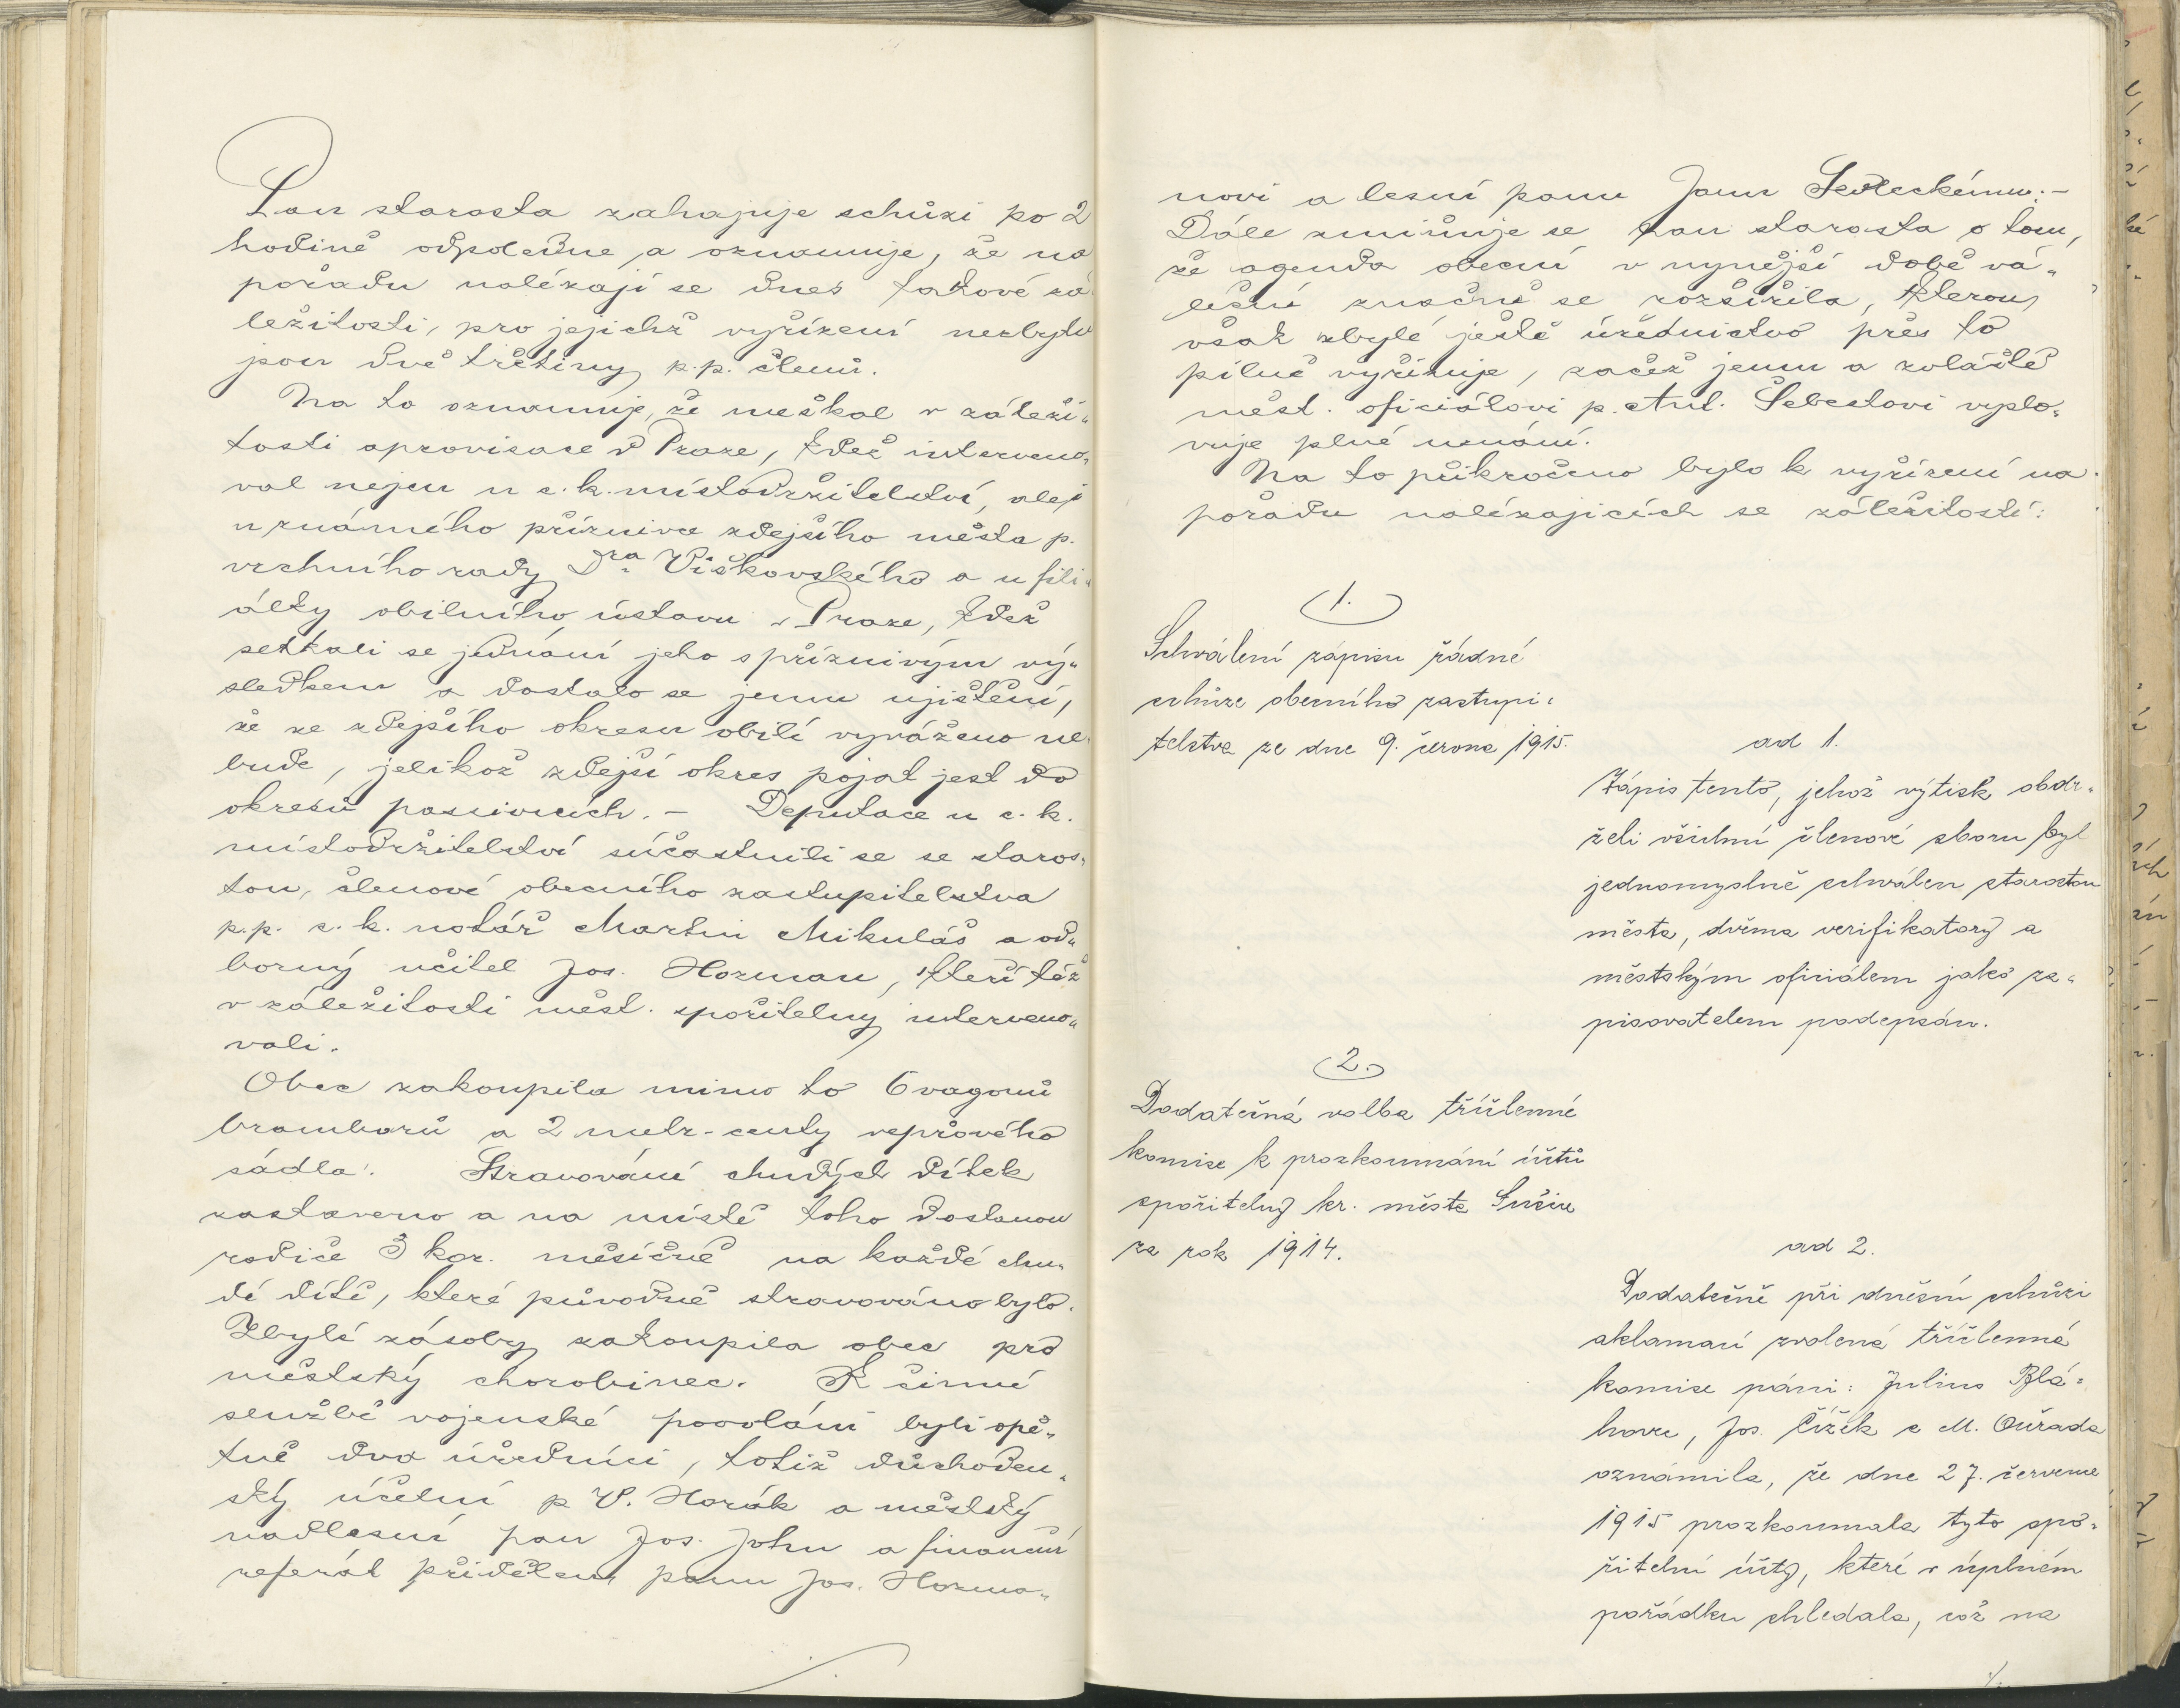 Pan starosta zahajuje schůzi po 2
hodině odpoledne a oznamuje, že na
pořadu nalézají se dnes takové zá-
ležitosti, pro jejichž vyřízení nezbytn
jsou dvě třetiny p.p. členů.
Na to oznamuje, že meškal v záleži-
tosti aprovisace v Praze, kdež interveno-
val nejen u c. k. místodržitelství, ale i
u známého příznivce zdejšího města p.
vrchního rady Dra. Viškovského a u fili-
álky obilního ústavu v Praze, kdež
setkali se jednání jeho s příznivým vý-
sledkem a dostalo se jemu ujištění,
že ze zdejšího okresu obilí vyváženo ne-
bude, jelikož zdejší okres pojat jest do
okresů pasivních. — Deputace u c. k.
místodržitelství súčastnili se se staros-
tou, členové obecního zastupitelstva
p.p. c. k. notář Martin Mikuláš a od-
borný učitel Jos. Hozman, kteří též
v záležitosti měst. spořitelny interveno-
vali.
Obec zakoupila mimo to 6 vagonů
bramborů a 2 metr-centy vepřového
sádla. Stravování chudých dítek
zastaveno a na místě toho dostanou
rodiče 3 kor. měsíčně na každé chu-
dé dítě, které původně stravováno bylo.
Zbylé zásoby zakoupila obec pro
městský chorobinec. K činné
službě vojenské povoláni byli opě-
tně dva úředníci, totiž důchoden-
ský účetní p V. Horák a městský
nadlesní pan Jos. John a finanční
referát přidělen panu Jos. Hozma-
novi a lesní panu Janu Sedleckému. —
Dále zmiňuje se pan starosta o tom,
že agenda obecní v nynější době vá-
lečné značně se rozšířila, kterou
však zbylé ještě úřednictvo přes to
pilně vyřizuje, začež jemu a zvláště
měst. oficiálovi p. Ant. Šebestovi vyslo-
vuje plné uznání.
Na to přikročeno bylo k vyřízení na
pořadu nalézajících se záležitostí:
1.
Schválení zápisu řádné
schůze obecního zastupi-
telstva ze dne 9. června 1915.
ad 1.
Zápis tento, jehož výtisk obdr-
želi všichni členové sboru byl
jednomyslně schválen starostou
města, dvěma verifikatory a
městským oficiálem jako za-
pisovatelem podepsán.
2.
Dodatečná volba tříčlenné
komise k prozkoumání účtů
spořitelny kr. města Sušice
za rok 1914.
ad 2.
Dodatečně při dnešní schůzi
aklamací zvolená tříčlenná
komise páni: Julius Blá-
hovec, Jos. Čížek a M. Ouřada
oznámila, že dne 27. července
1915 prozkoumala tyto spo-
řitelní účty, které v úplném
pořádku shledala, což na